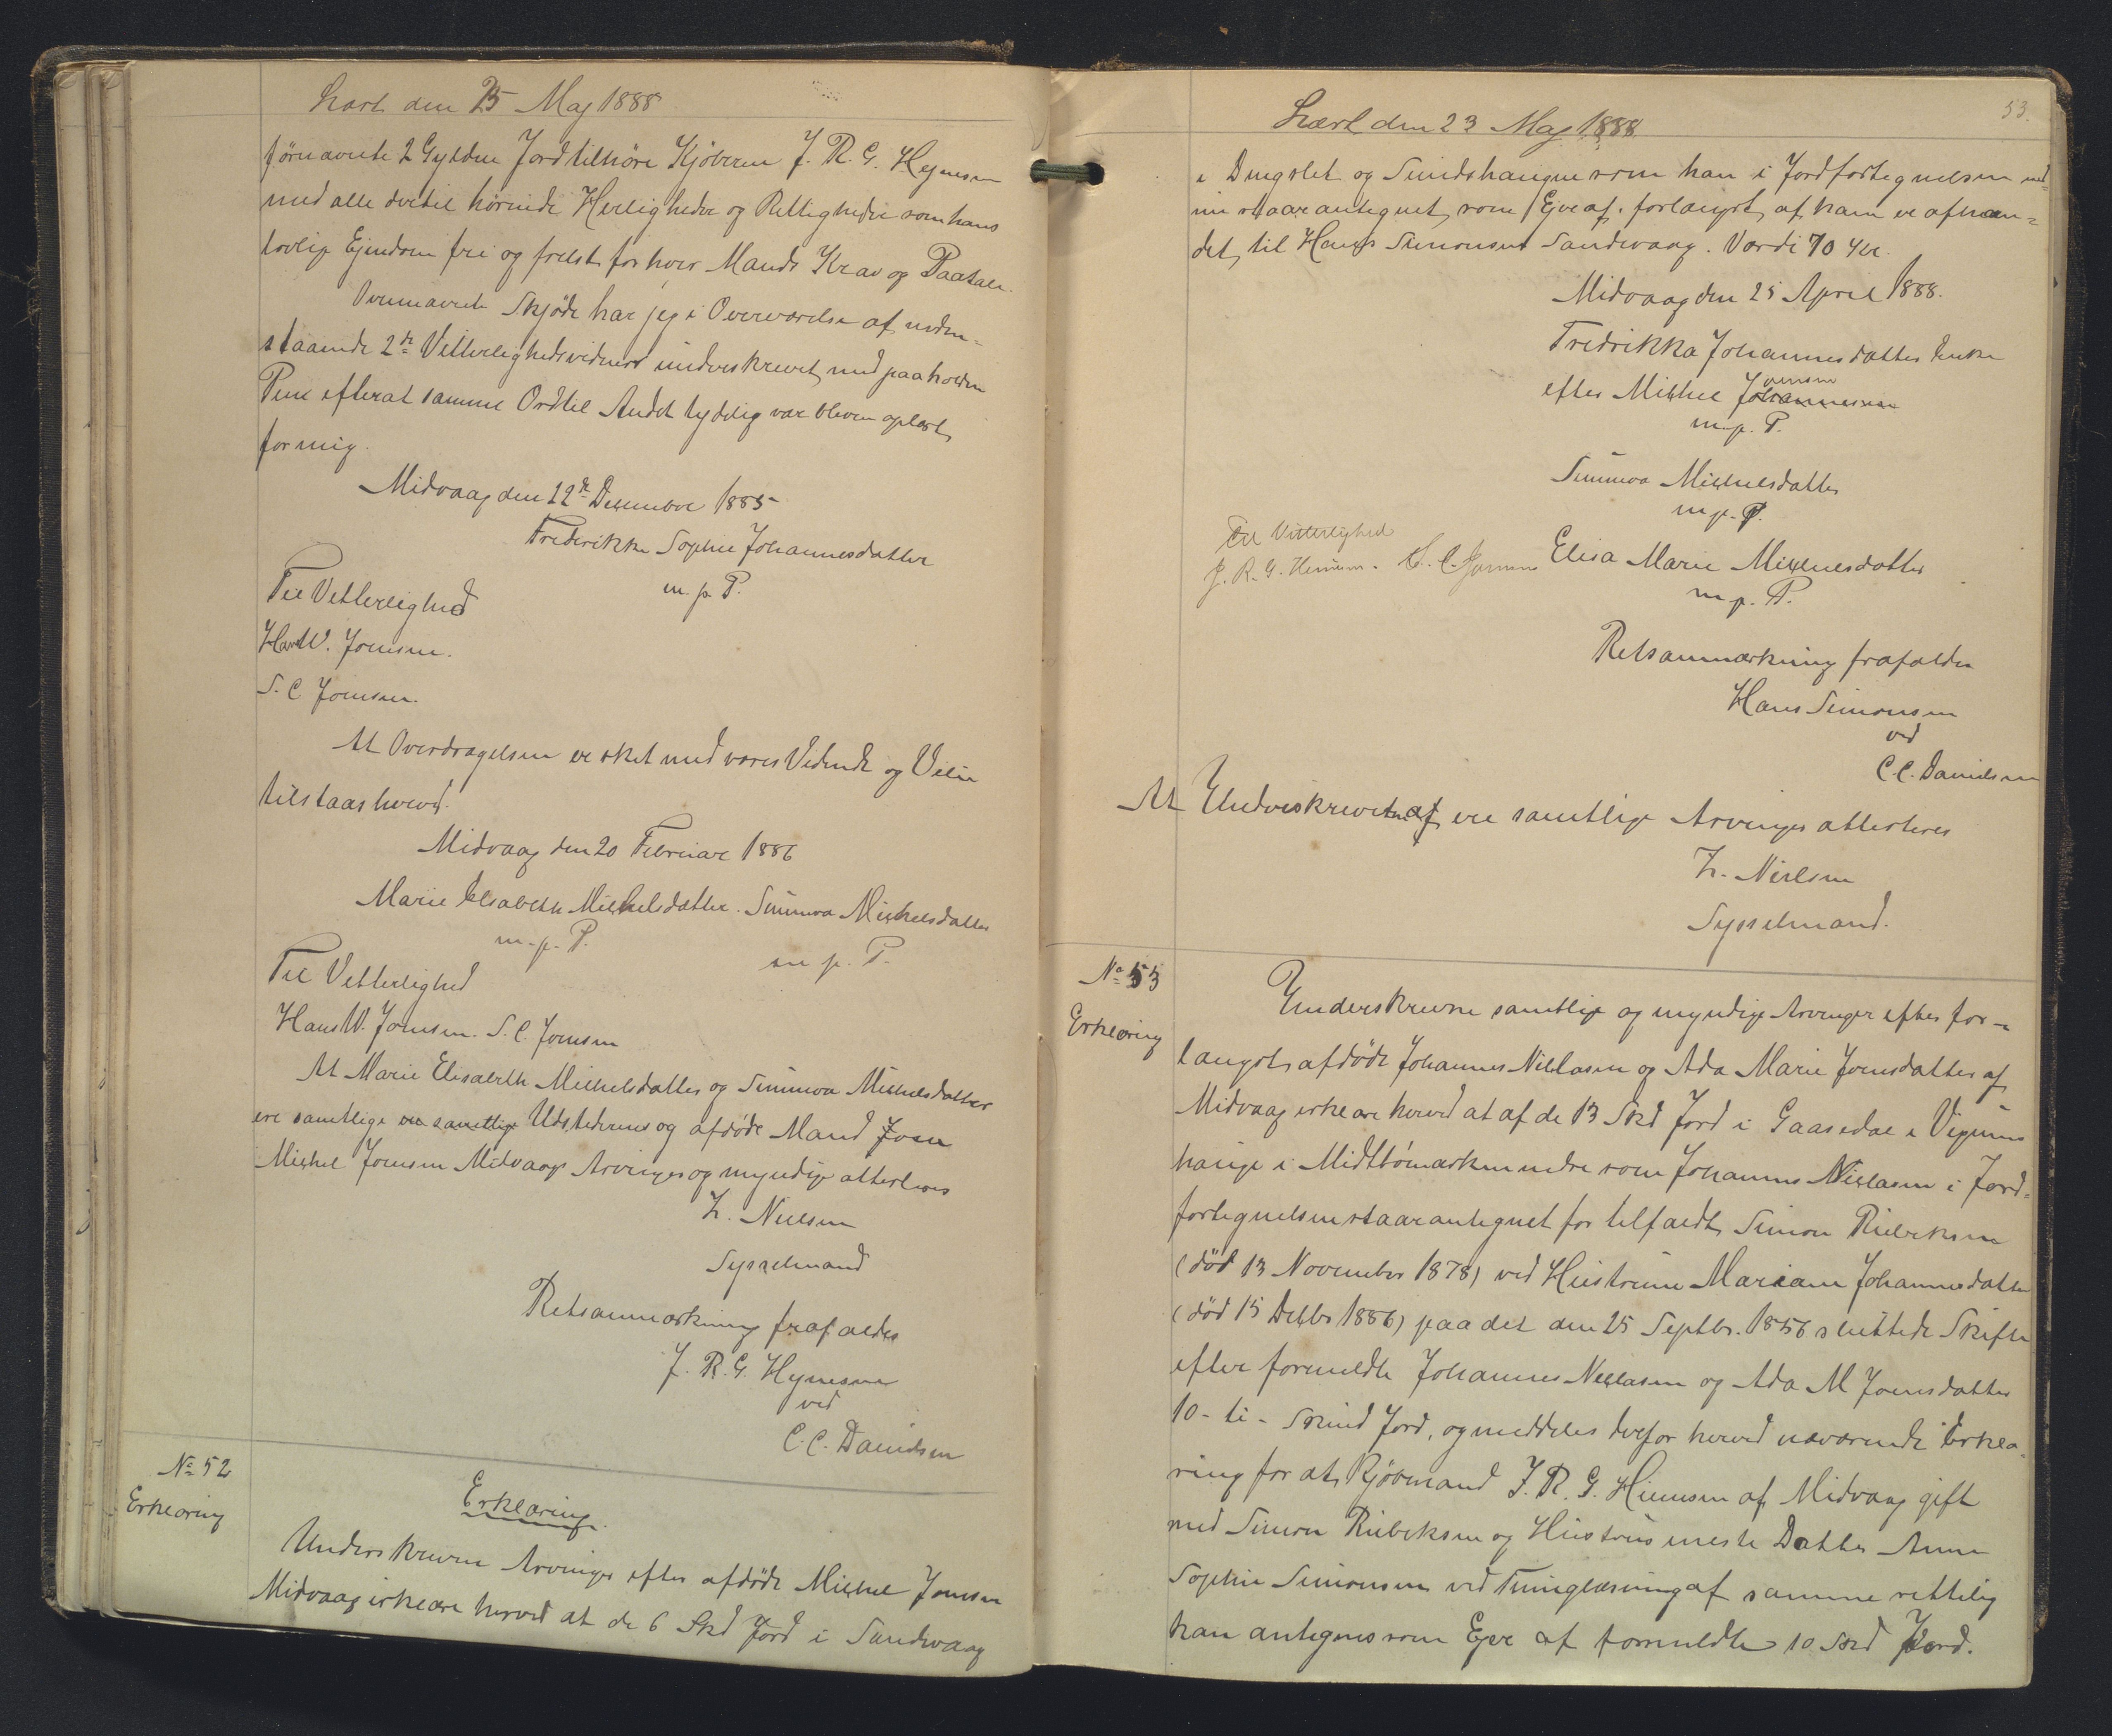 Læst den 25 Maj 1888
førnævnte 2 Gylden Jord tilhøre Kjøberen J. R. G. Heynesen
med alle dertil hørende Herligheder og Rettigheder som hans
lovlig Ejendom fri og frelst for hver Mands Krav og Paatale.
Ovennævnte Skjøde har jeg i Overværelse af neden-
staaende 2de Vitterlighedsvidner underskrevet med paaholden
Pen efterat samme Ord til Andet tydelig var bleven oplæst
for mig.
Midvaag den 22de December 1885
Frederikke Sophie Johannesdatter
m. p. P.
Til Vitterlighed
Hans W. Joensen.
S. C. Joensen.
At Overdragelsen er sket med vores Vidende og Villie
tilstaas herved.
Midvaag den 20 Februar 1886
Marie Elsabeth Michelsdatter. Sunneva Michelsdatter
m. p. P.
m p. P.
Til Vitterlighed
Hans W. Joensen. S. C. Joensen
At Marie Elisabeth Michelsdatter og Sunneva Michelsdatter
ere samtlige ere samtlige Udstederens og afdøde Mand Joen
Michel Joensen Midvaags Arvinger og myndige attesteres
Z. Nielsen
Sysselmand
Retsanmærkning frafaldes
J. R. G. Hynesen
ved
C. C. Danielsen
No 52
Erklæring
Erklæring.
Underskrevne Arvinger efter afdøde Michel Joensen
Midvaag erklære herved at de 6 Skd Jord i Sandevaag
53.
Læst den 23 Maj 1888
i Dingslet og Sundshaugne som han i Jordfortegnelsen end-
nu staar antegnet som Ejer af. forlængst af ham er afhæn-
det til Hans Simonsen Sandevaag. Værdi 70 Kr.
Midvaag den 25 April 1888.
Fredrikka Johannesdatter Enke
Joensen
efter Michel Johannesen
m. p. P.
Sunneva Michelsdatter
m p. P.
Til Vitterlighed
J. R. G. Heinesen. C. C. Joensen Elisa Marie Michelsdatter
m p. P.
Retsanmærkning frafaldes
Hans Simonsen
ved
C. C. Danielsen
At Underskriverne af ere samtlige Arvinger attesteres
Z. Nielsen
Sysselmand.
No 53
Erklæring
Underskrevne samtlige og myndige Arvinger efter for-
længst afdøde Johannes Niclasen og Ada Marie Joensdatter af
Midvaag erklære herved at af de 13 Skd Jord i Gaasedal i Viguns
hauge i Midtbømarken nedre som Johannes Niclasen i Jord-
fortegnelsen staar antegnet for tilfaldt Simon Rubeksen
(død 13 November 1878) ved Hustruen Mariane Johannesdatter
(død 15 Decbr 1886) paa det den 25 Septbr. 1856 sluttede Skifte
efter formeldte Johannes Niclasen og Ada M Joensdatter
10 - ti - Skind Jord, og meddeles derfor herved nærværende Erklæ-
ring for at Kjøbmand J. R. G. Heinesen af Midvaag gift
med Simon Rubeksen og Hustrus eneste Datter Anne
Sophie Simonsen ved Tinglæsning af samme rettelig
kan antegnes som Ejer af formeldte 10 Skd Jord.